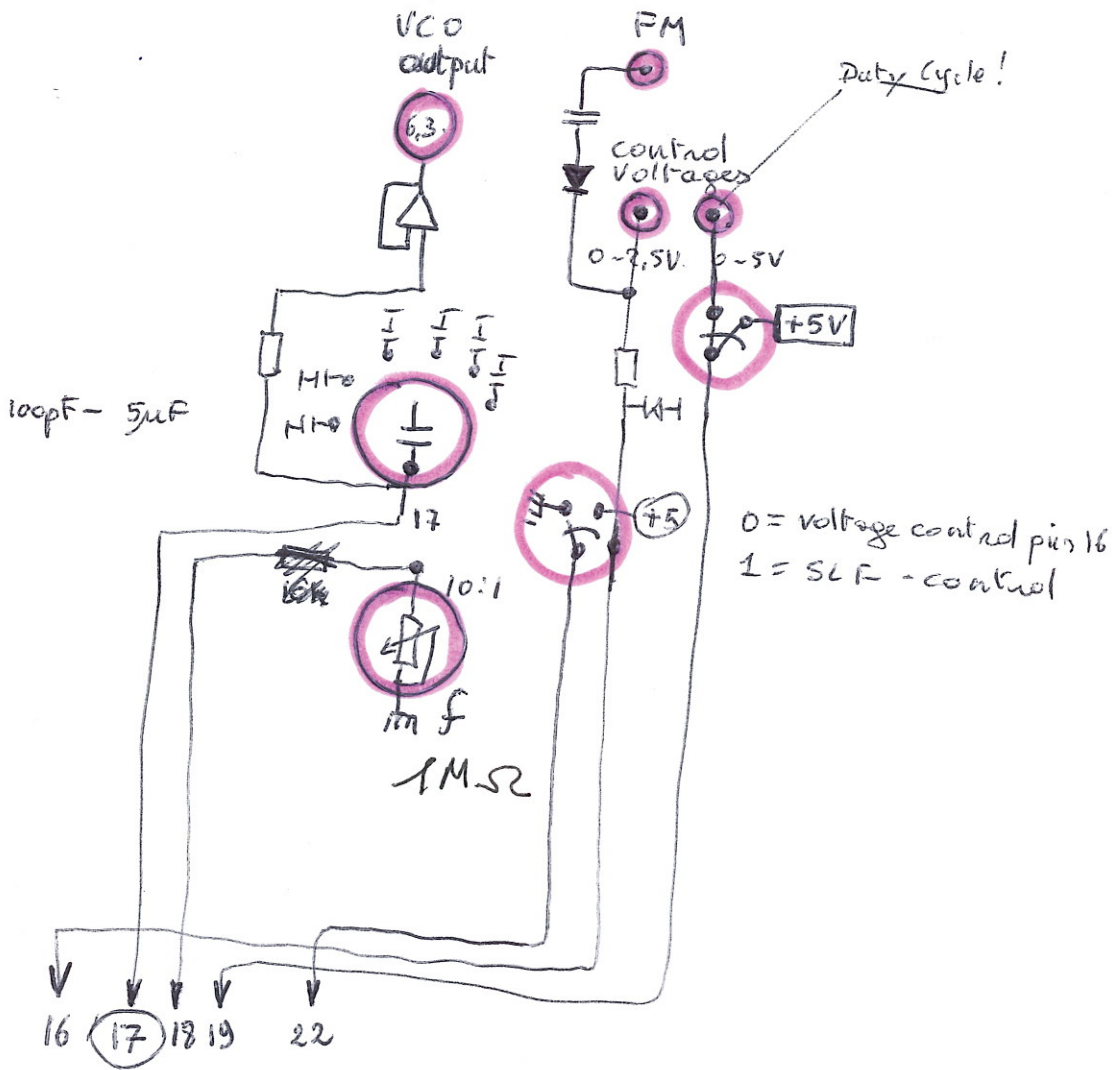 VCO
output
FM
Duty Cycle!
6,3.
control
voltages
0-2,5V.
0-5V
+5V
100pF - 5µF
17
+5
0 = voltage control pin 16
1 = SLF - control
10:1
f
1MΩ
16 17 18 19 22